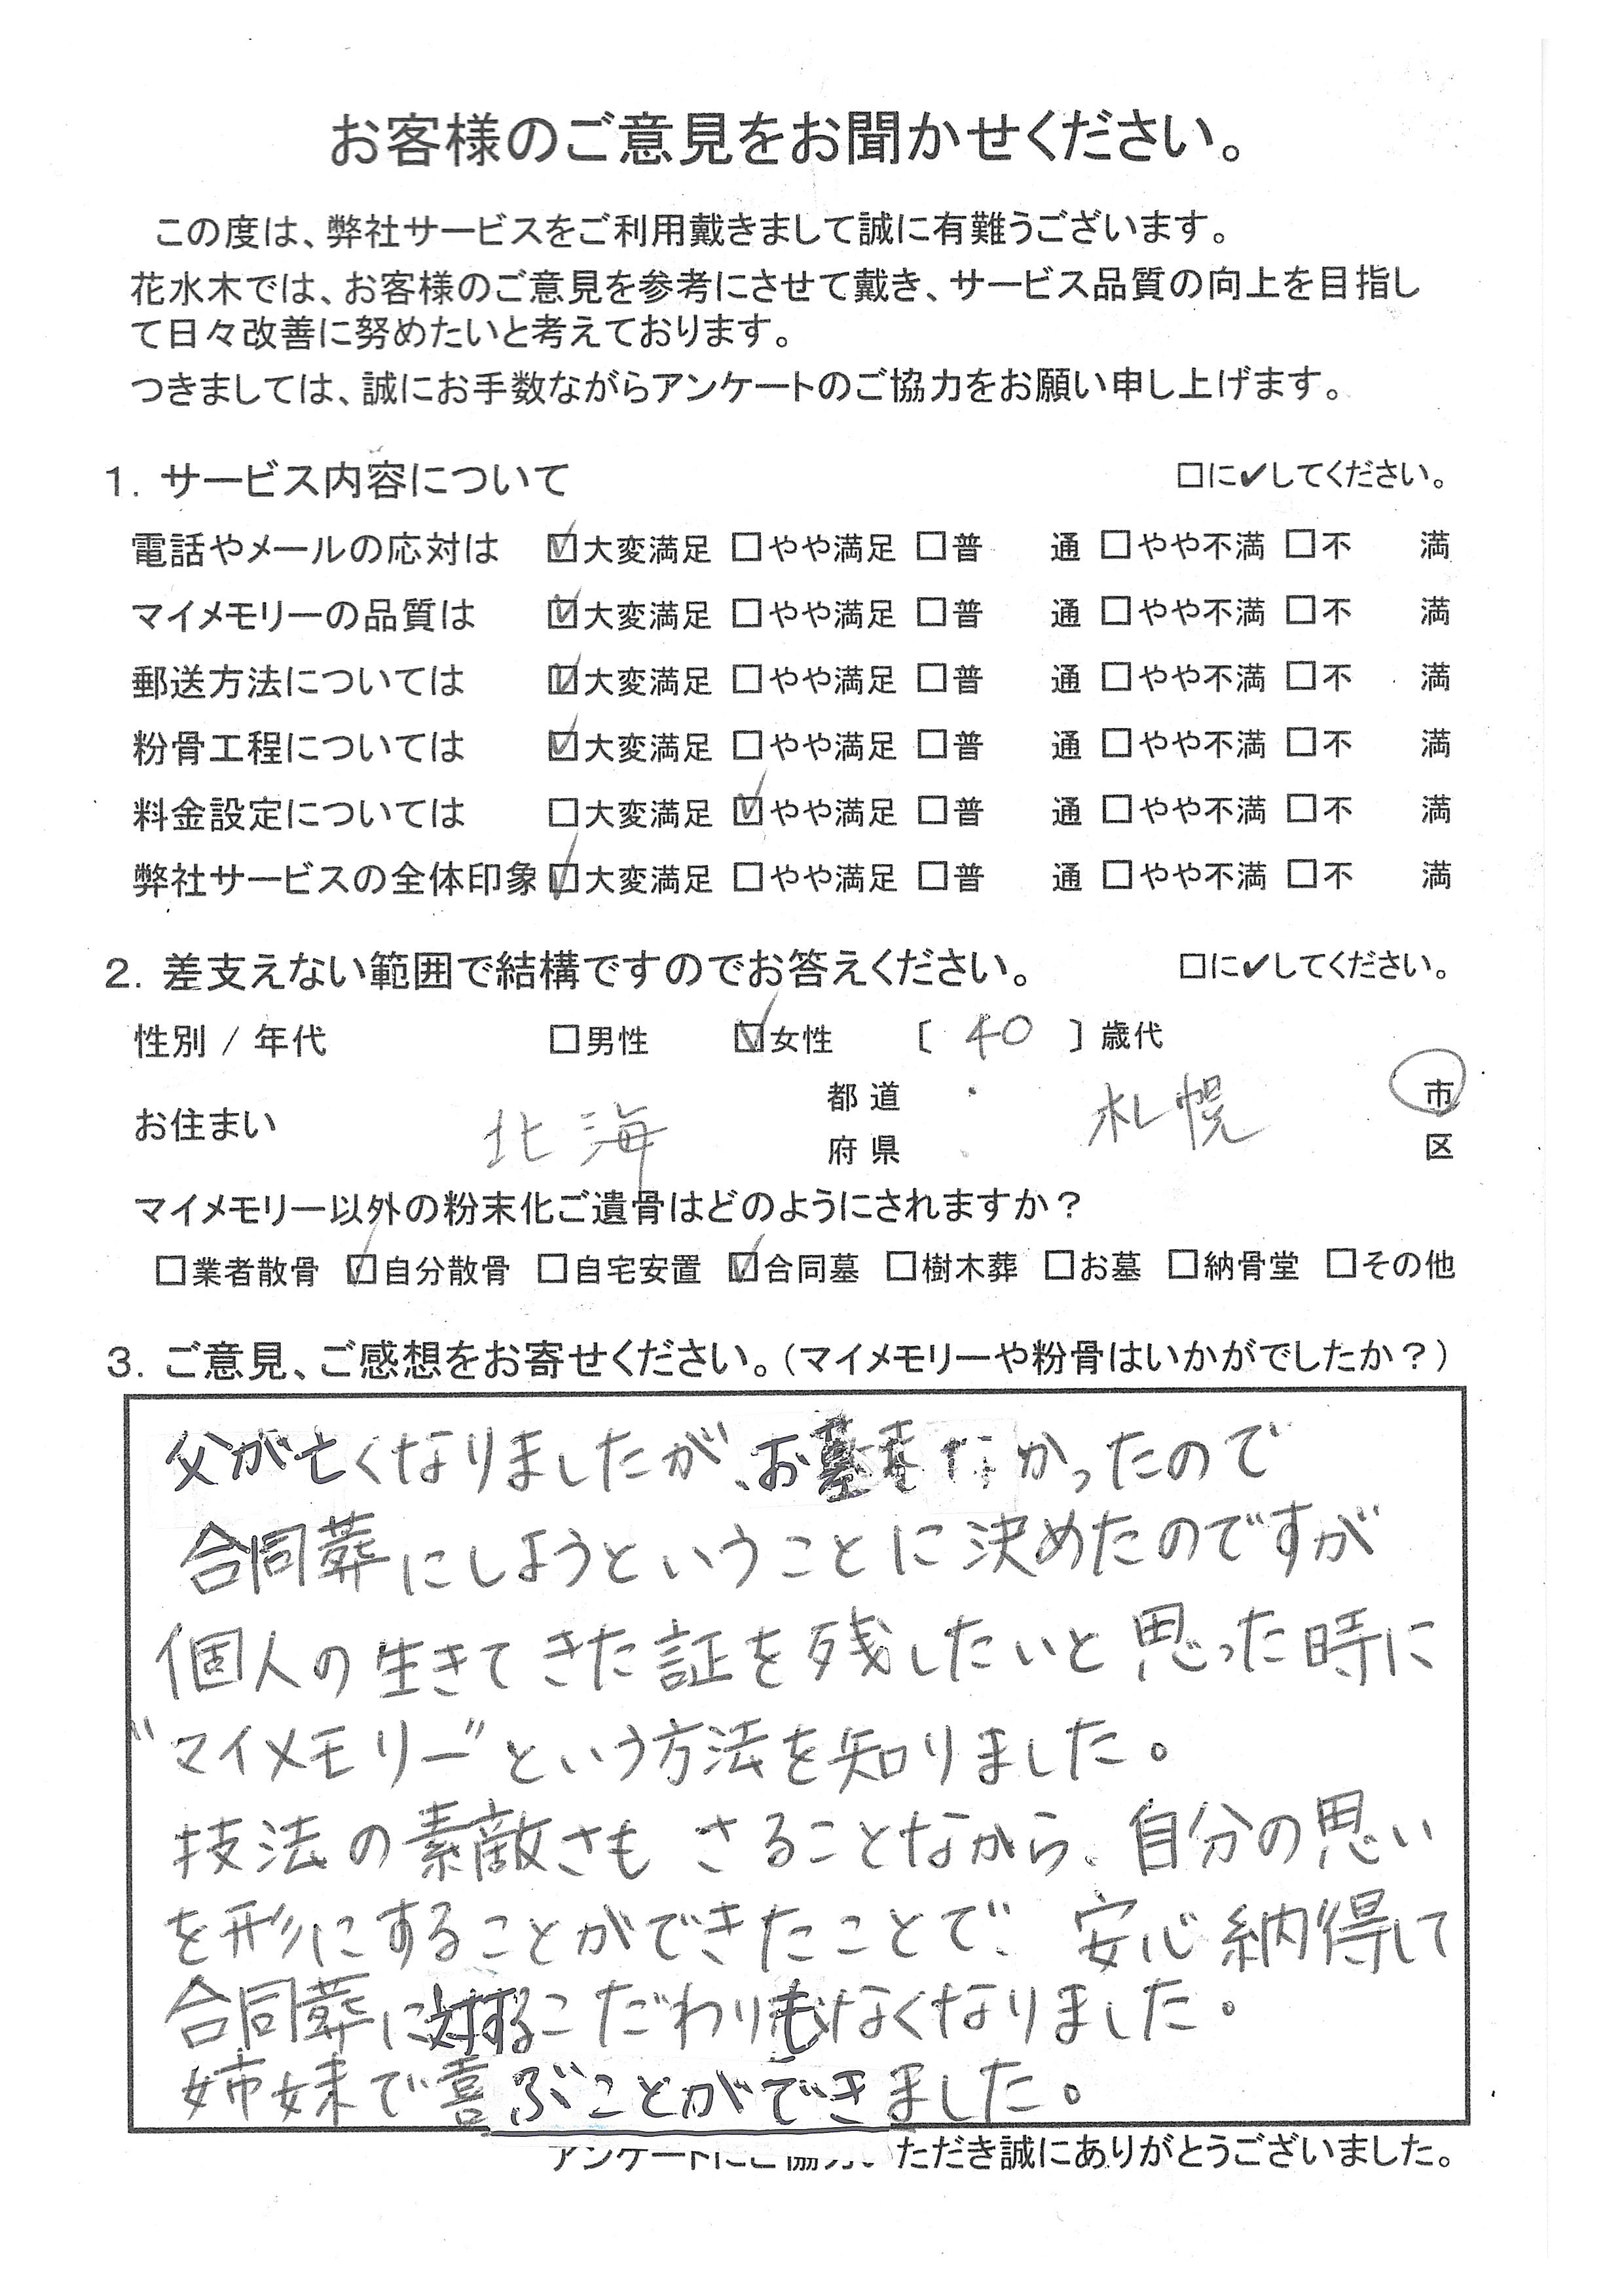 お客様のご意見をお聞かせください。
この度は、弊社サービスをご利用戴きまして誠に有難うございます。
花水木では、お客様のご意見を参考にさせて戴き、サービス品質の向上を目指し
て日々改善に努めたいと考えております。
つきましては、誠にお手数ながらアンケートのご協力をお願い申し上げます。
1. サービス内容について □に✔してください。
電話やメールの応対は ☑大変満足 □やや満足 □普 通 □やや不満 □不 満
マイメモリーの品質は ☑大変満足 □やや満足 □普 通 □やや不満 □不 満
郵送方法については ☑大変満足 □やや満足 □普 通 □やや不満 □不 満
粉骨工程については ☑大変満足 □やや満足 □普 通 □やや不満 □不 満
料金設定については □大変満足 ☑やや満足 □普 通 □やや不満 □不 満
弊社サービスの全体印象 ☑大変満足 □やや満足 □普 通 □やや不満 □不 満
2. 差支えない範囲で結構ですのでお答えください。 □に✔してください。
性別 / 年代 □男性 ☑女性 〔 40 〕歳代
お住まい 北海 都道府県 札幌 市区
マイメモリー以外の粉末化ご遺骨はどのようにされますか?
□業者散骨 ☑自分散骨 □自宅安置 ☑合同墓 □樹木葬 □お墓 □納骨堂 □その他
3. ご意見、ご感想をお寄せください。(マイメモリーや粉骨はいかがでしたか?)
父が亡くなりましたが、お墓なかったので
合同葬にしようということに決めたのですが
個人の生きてきた証を残したいと思った時に
"マイメモリー"という方法を知りました。
技法の素敵さもさることながら、自分の思い
を形にすることができたことで、安心納得して
合同葬に対するこだわりもなくなりました。
姉妹で喜ぶことができました。
アンケートにご協力いただき誠にありがとうございました。